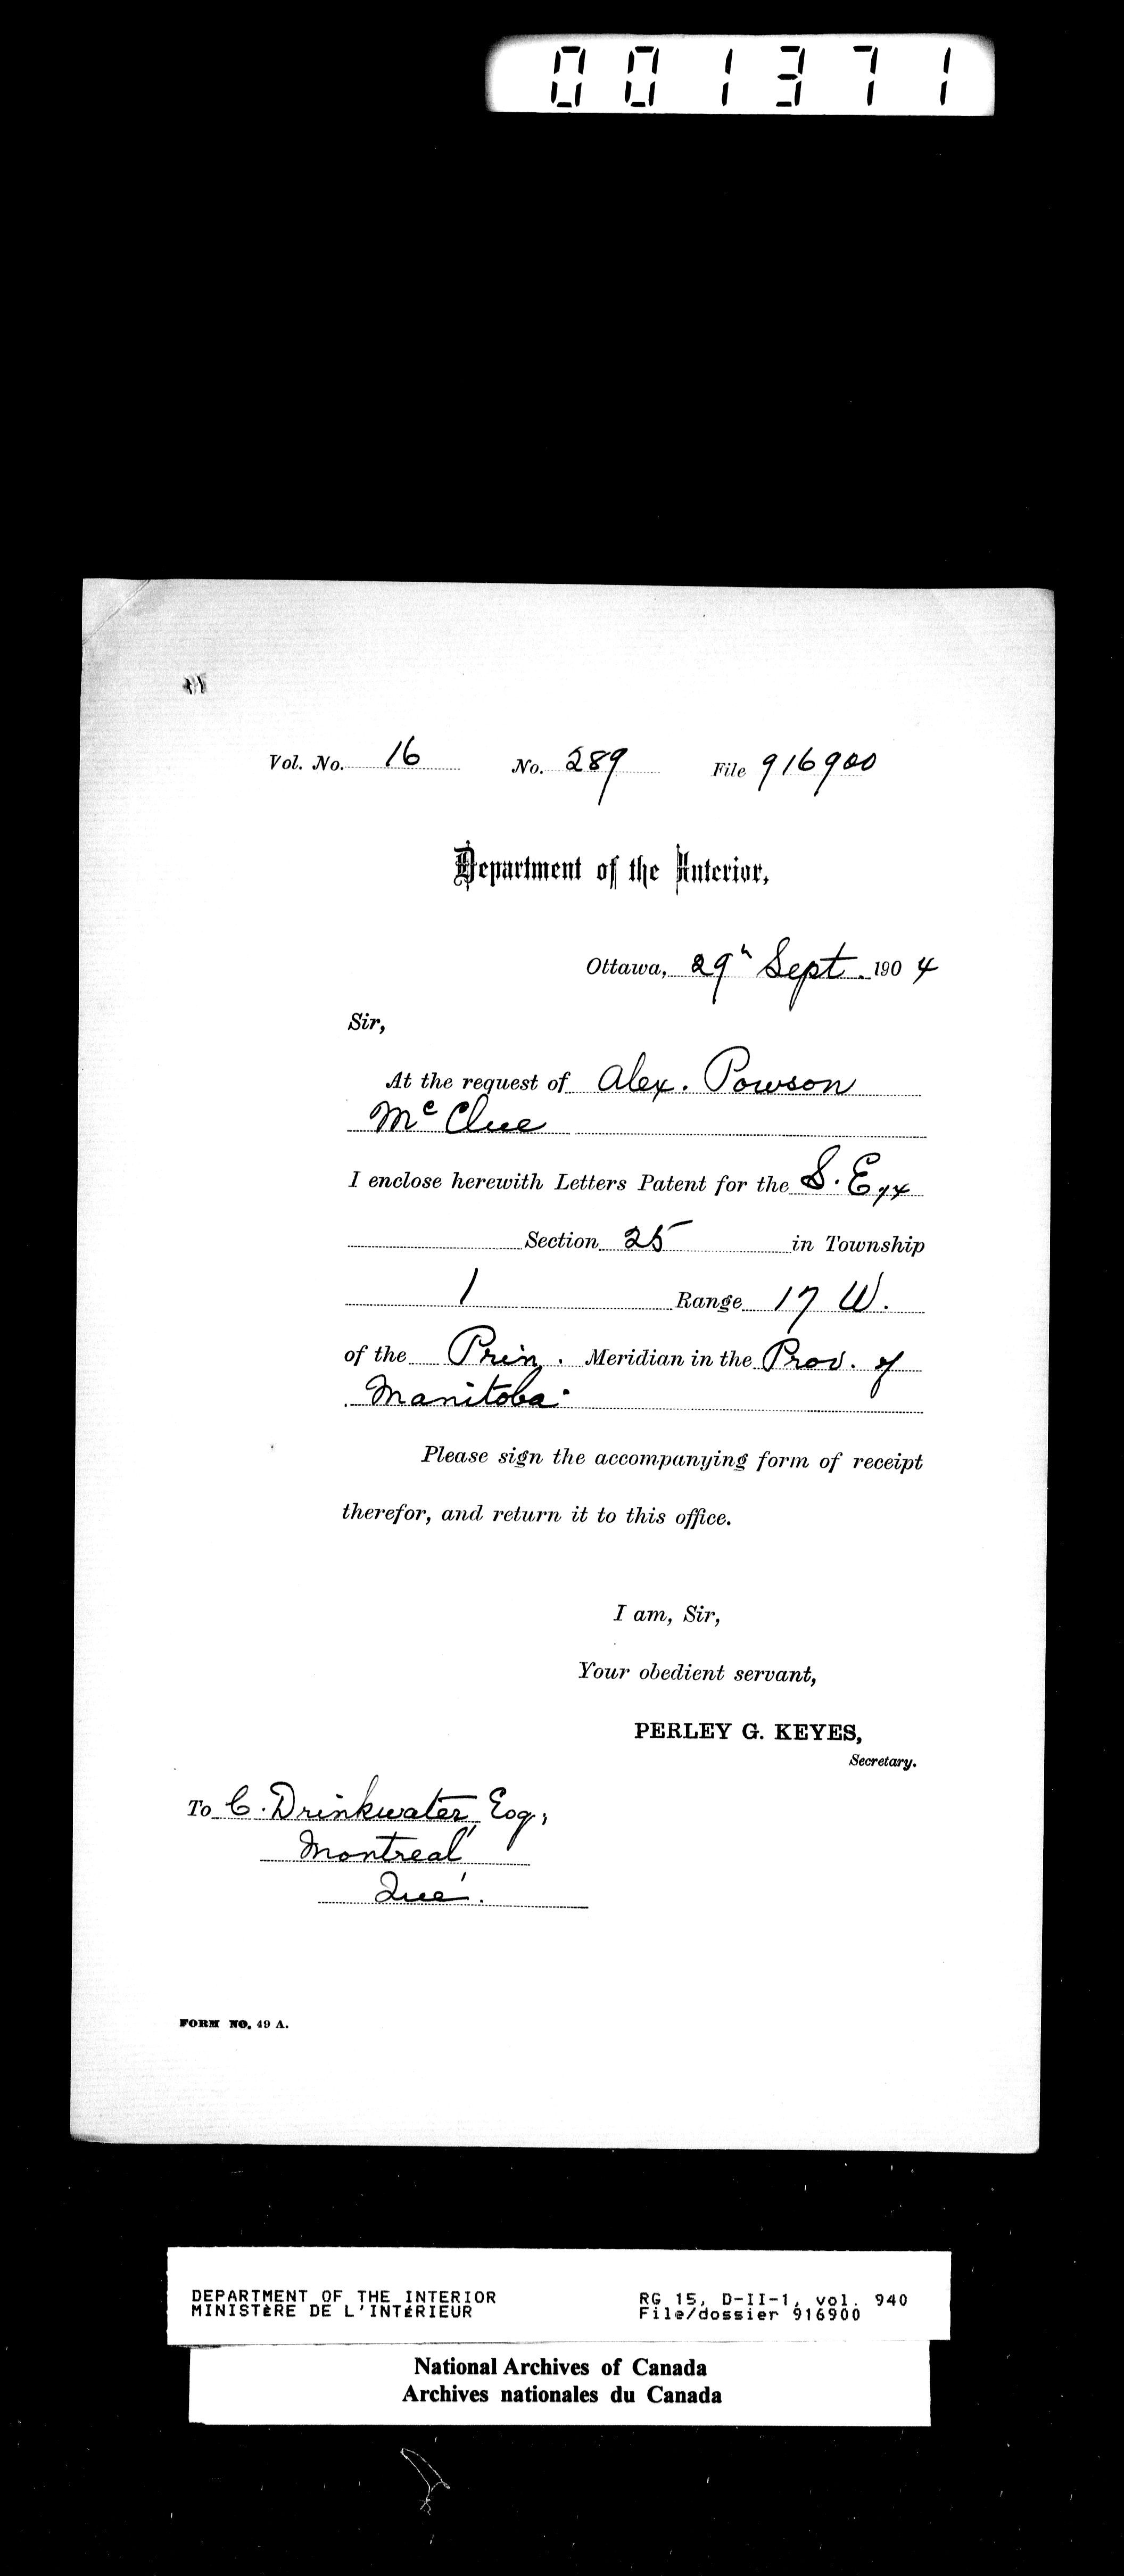 001371
Vol. No. 16 No. 289 File 916900
Department of the Interior,
Ottawa, 29th Sept. 1904
Sir,
At the request of Alex. Powson
McClue
I enclose herewith Letters Patent for the S. E 1/4
Section 25 in Township
1 Range 17 W.
of the Prin. Meridian in the Prov. of
Manitoba.
Please sign the accompanying form of receipt
therefor, and return it to this office.
I am, Sir,
Your obedient servant,
PERLEY G. KEYES,
Secretary.
To C. Drinkwater, Esq,
Montreal,
Que.
FORM NO. 49 A.
DEPARTMENT OF THE INTERIOR RG 15, D-II-1, vol. 940
MINISTÈRE DE L'INTÉRIEUR File/dossier 916900
National Archives of Canada
Archives nationales du Canada